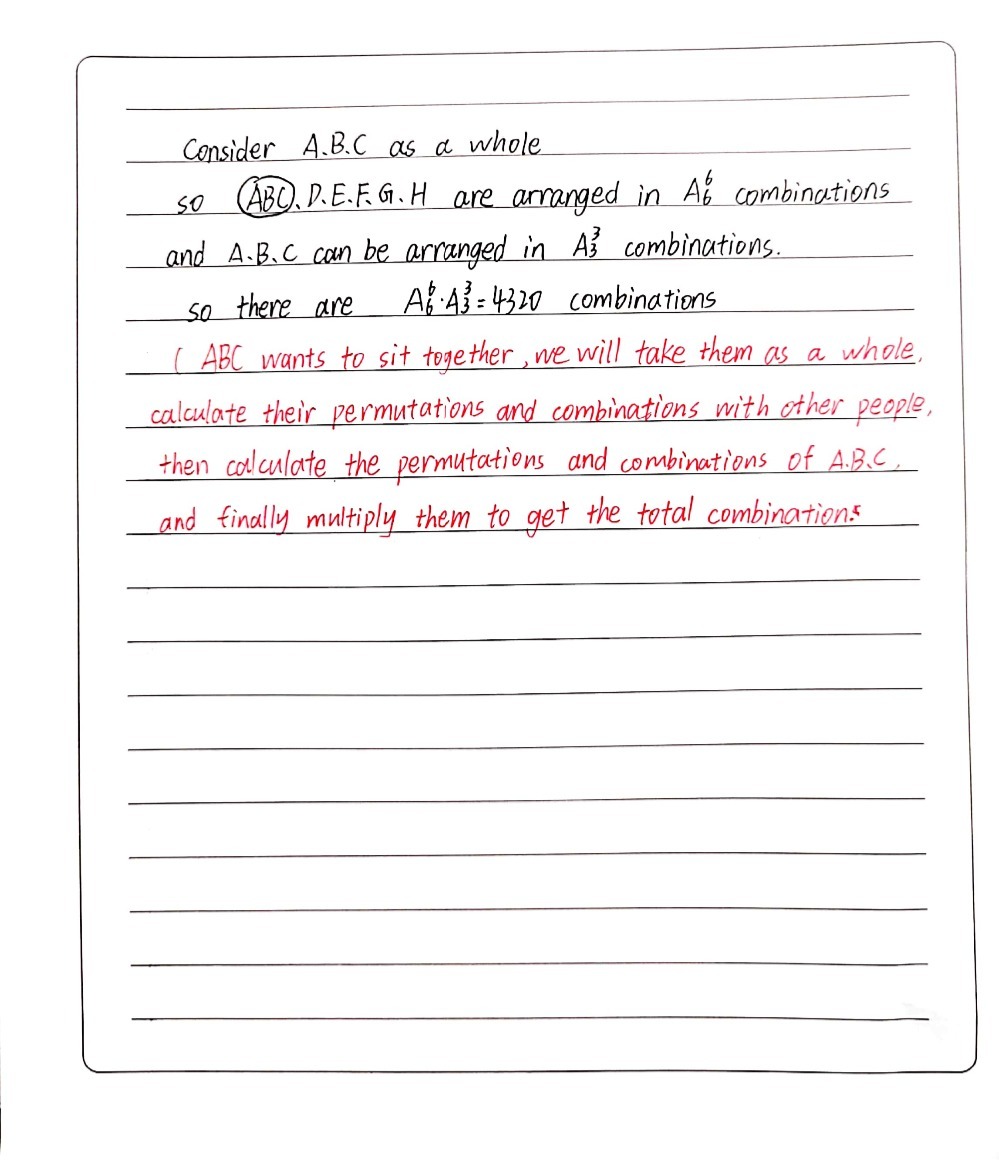 Consider A.B.C as a whole
so (ABC).D.E.F.G.H are arranged in A₆⁶ combinations
and A.B.C can be arranged in A₃³ combinations.
so there are A₆⁶·A₃³=4320 combinations
( ABC wants to sit together, we will take them as a whole,
calculate their permutations and combinations with other people,
then calculate the permutations and combinations of A.B.C,
and finally multiply them to get the total combinations